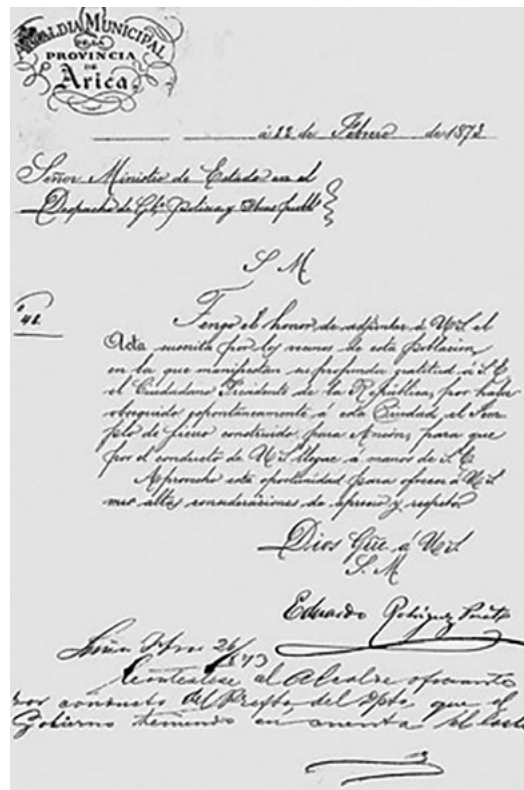 ALCALDIA MUNICIPAL
DE LA
PROVINCIA
DE
Arica
á 22 de Febrero de 1873
Señor Ministro de Estado en el
Despacho de Gbo Policia y Obras publs
S. M.
48.
Tengo el honor de adjuntar á U.S. el
Acta suscrita por los vecinos de esta Poblacion,
en la que manifiestan su profunda gratitud á S. E.
el Ciudadano Presidente de la República, por haber
obsequiado espontáneamente á esta Ciudad, el Tem
plo de fierro construido para Ancon, para que
por el conducto de U.S. llegue á manos de S. E.
Aprovecho esta oportunidad para ofrecer á U.S.
mis altas consideraciones de aprecio y respeto
Dios Gue á U.S.
S. M.
Eduardo Rodriguez
Lima 26/873
Contéstese al Alcalde oficiante
por conducto del Prefto del Dpto, que el
Gobierno teniendo en cuenta